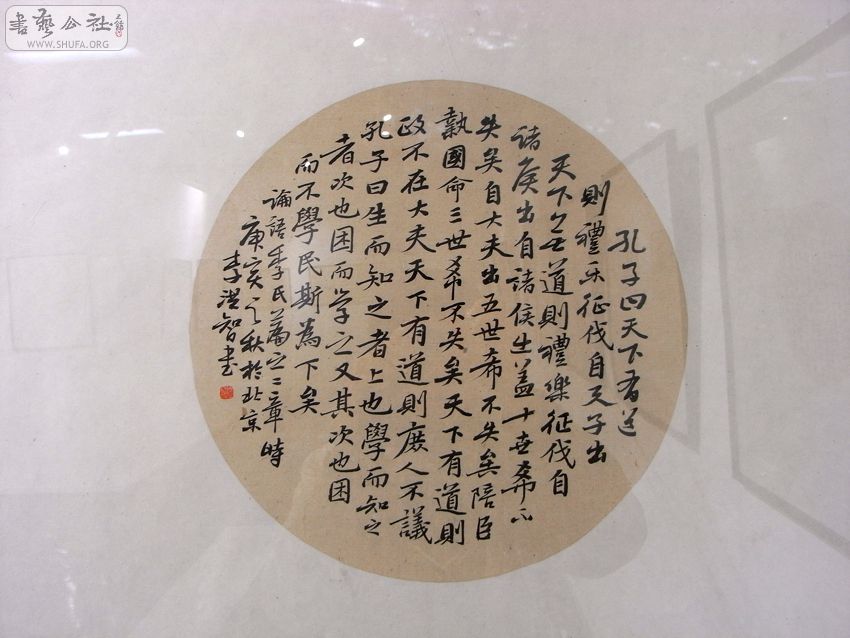 書藝公社
WWW.SHUFA.ORG
孔子曰天下有道
則禮乐征伐自天子出
天下无道則禮樂征伐自
諸侯出自諸侯出蓋十世希不
失矣自大夫出五世希不失矣陪臣
執國命三世希不失矣天下有道則
政不在大夫天下有道則庶人不議
孔子曰生而知之者上也學而知之
者次也困而学之又其次也困
而不學民斯為下矣
論語季氏篇之二章時
庚亥之秋於北京
李智书